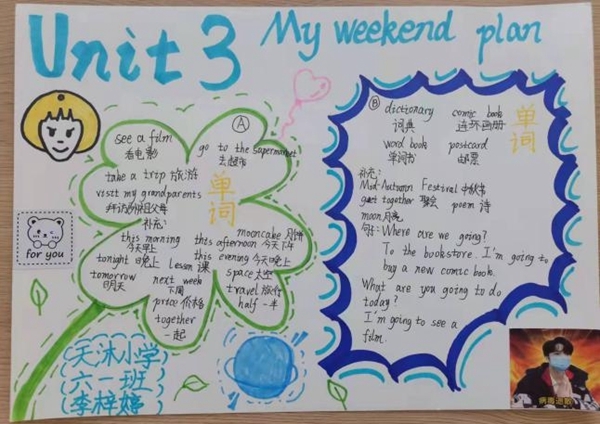 Unit 3 My weekend plan
Ⓐ
see a film
看电影
go to the supermarket
去超市
take a trip 旅游
visit my grandparents
拜访外祖父母
单词
补充:
this morning
今天早上
mooncake 月饼
this afternoon 今天下午
tonight 晚上
lesson 课
this evening 今天晚上
tomorrow
明天
next week
下周
space 太空
travel 旅行
price 价格
half 一半
together
一起
for you
(天沐小学)
(六一班)
(李梓婷)
Ⓑ
dictionary
词典
comic book
连环画册
单词
word book
单词书
postcard
补充:
Mid-Autumn Festival 中秋节
get together 聚会 poem 诗
moon 月亮
句子: Where are we going?
To the bookstore. I'm going to
buy a new comic book.
What are you going to do
today?
I'm going to see a
film.
病毒退散